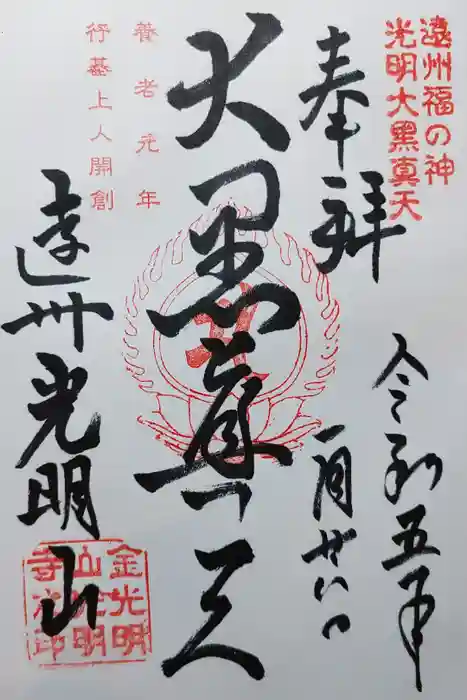 遠州福の神
光明大黒真天
奉拝
令和五年
一月廿八日
大黒真天
養老元年
行基上人開創
遠州光明山
金光明
山光明
寺
印